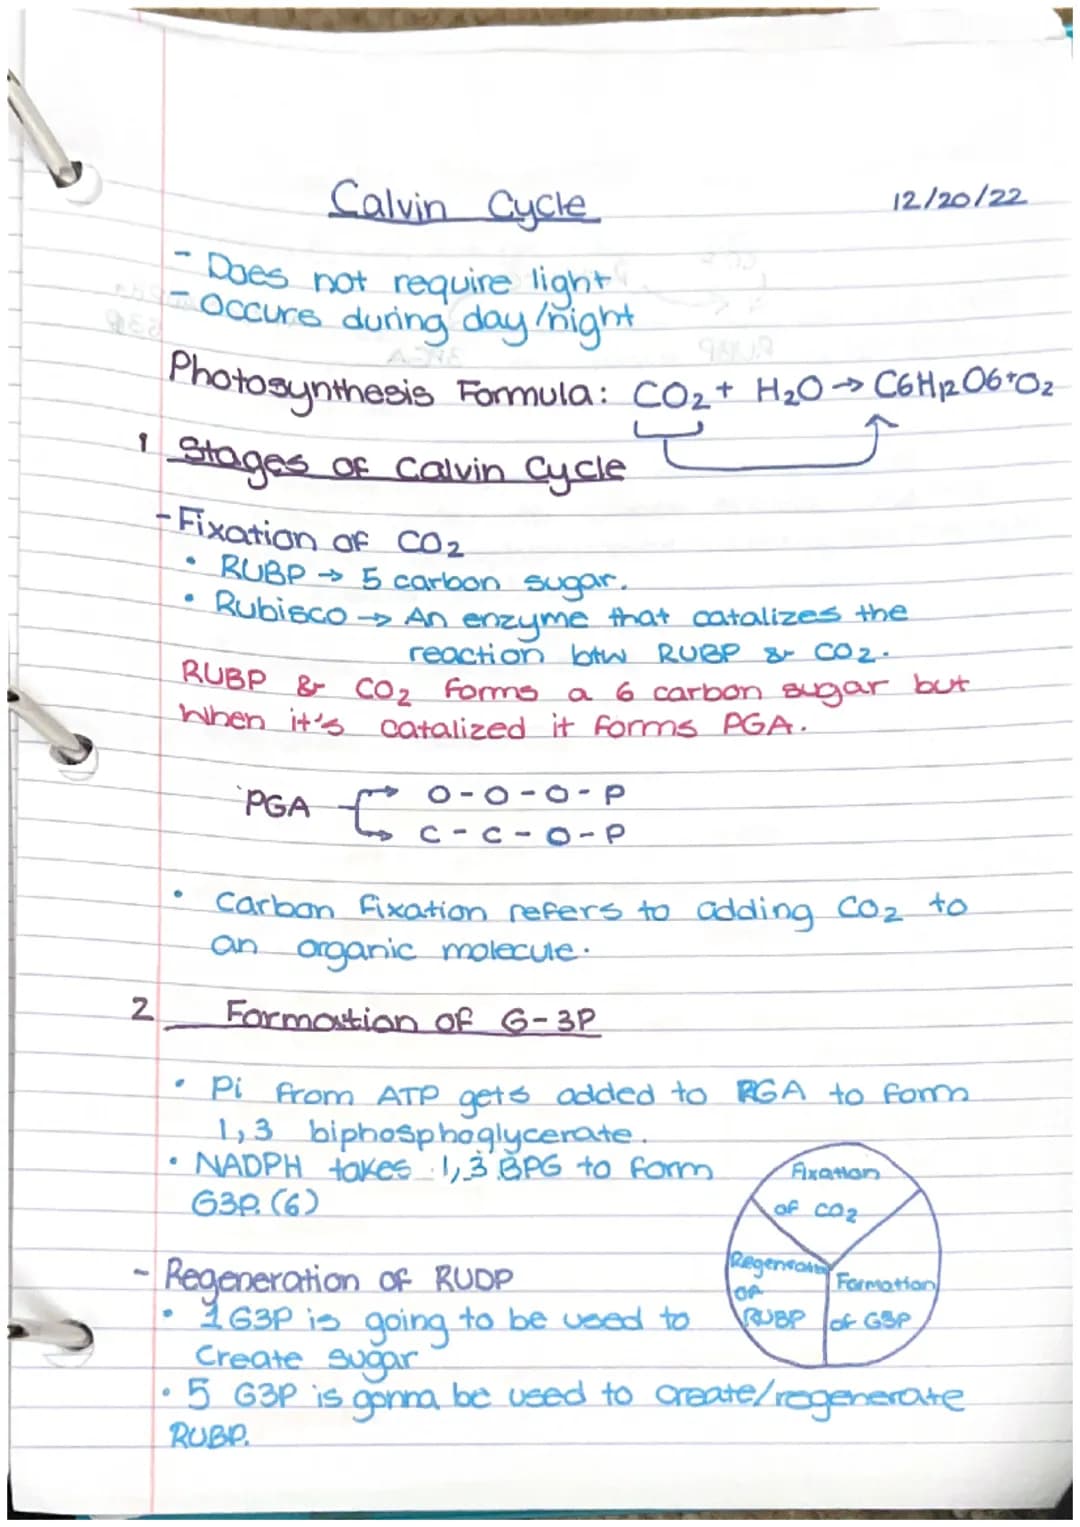 Calvin Cycle 12/20/22
- Does not require light
- Occurs during day/night
Photosynthesis Formula: CO2 + H2O → C6H12O6 + O2
1 Stages of Calvin Cycle
- Fixation of CO2
• RUBP → 5 carbon sugar.
• Rubisco → An enzyme that catalizes the
reaction btw RUBP & CO2.
RUBP & CO2 forms a 6 carbon sugar but
when it's catalized it forms PGA.
PGA → O-O-O-P
→ C-C-O-P
• Carbon fixation refers to adding CO2 to
an organic molecule.
2 Formation of G-3P
• Pi from ATP gets added to PGA to form
1,3 biphosphoglycerate.
• NADPH takes 1,3 BPG to form
G3P. (6)
Fixation
of CO2
Regeneration
of
RUBP
Formation
of G3P
- Regeneration of RUDP
• 1 G3P is going to be used to
Create sugar
• 5 G3P is gonna be used to create/regenerate
RUBP.